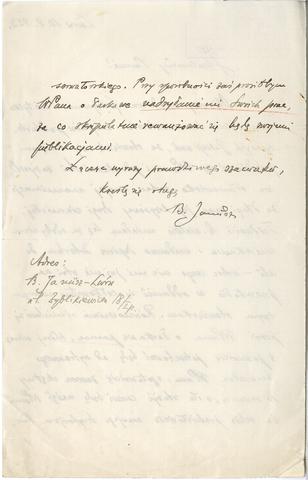 serwatorskiego. Przy sposobności zaś prosiłbym
WPana o łaskawe nadsyłanie mi Swoich prac,
za co skrzętnie rewanżować się będę swojemi
publikacjami.
Łączę wyrazy prawdziwego szacunku,
kreślę się sługą
B. Janusz
Adres:
B. Janusz - Lwów
ul. Zyblikiewicza 18/Ip.